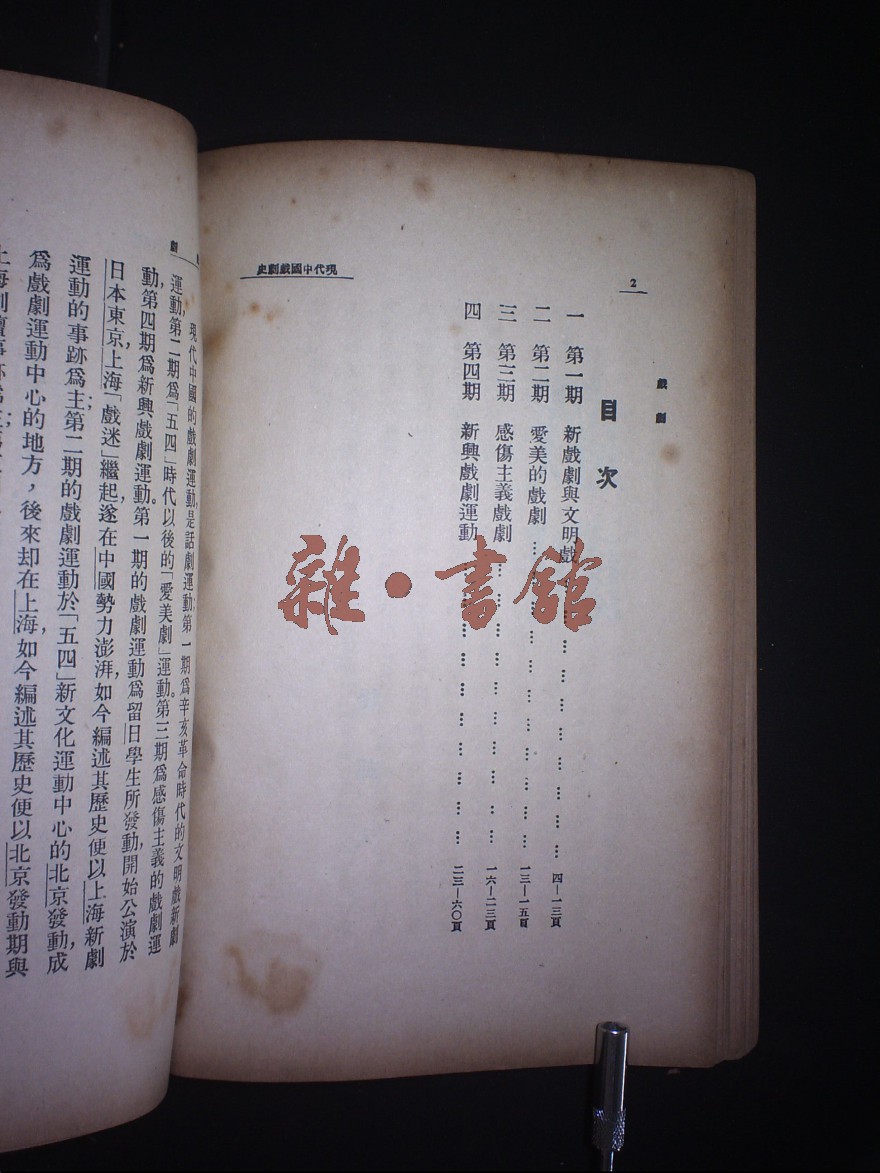 2
戲劇
目次
一 第一期 新戲劇與文明戲……………………四—一三頁
二 第二期 愛美的戲劇……………………一三—一五頁
三 第三期 感傷主義戲劇……………………一六—二三頁
四 第四期 新興戲劇運動……………………二三—六〇頁
現代中國戲劇史
雜·書館
劇
現代中國的戲劇運動，是話劇運動；第一期爲辛亥革命時代的文明戲新劇
運動，第二期爲「五四」時代以後的「愛美劇」運動。第三期爲感傷主義的戲劇運
動，第四期爲新興戲劇運動。第一期的戲劇運動爲留日學生所發動，開始公演於
日本東京，上海「戲迷」繼起，遂在中國勢力澎湃，如今編述其歷史便以上海新劇
運動的事跡爲主；第二期的戲劇運動於「五四」新文化運動中心的北京發動，成
爲戲劇運動中心的地方，後來却在上海，如今編述其歷史便以北京發動期與
上海